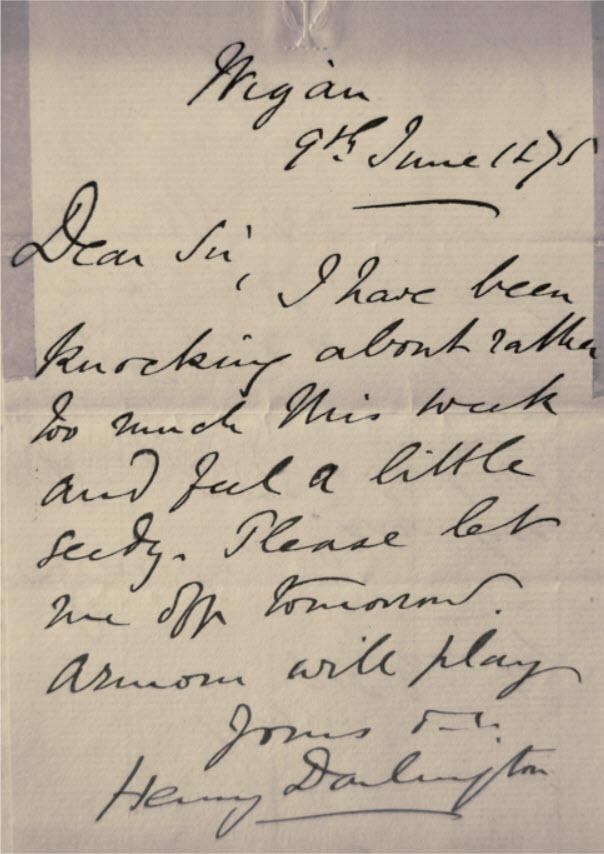 Wigan
9th June 1875
Dear Sir,
I have been
knocking about rather
too much this week
and feel a little
seedy. Please let
me off tomorrow.
will play
Yours
Henry Darlington